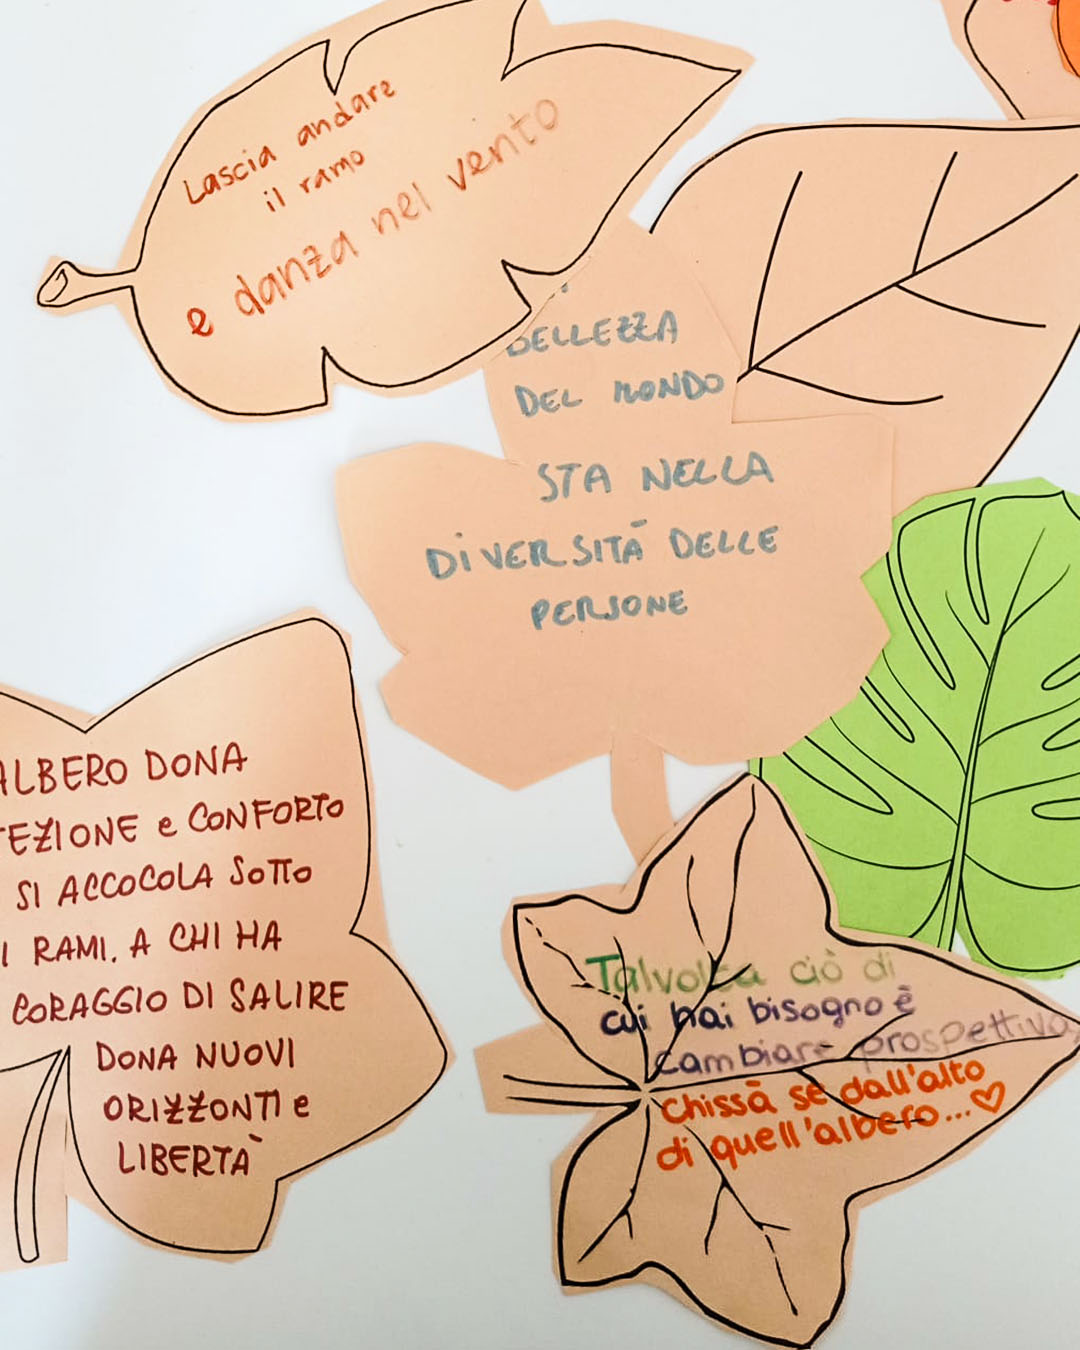 Lascia andare
il ramo
e danza nel vento
BELLEZZA
DEL MONDO
STA NELLA
DIVERSITÀ DELLE
PERSONE
ALBERO DONA
TEZIONE e CONFORTO
SI ACCOCOLA SOTTO
I RAMI. A CHI HA
CORAGGIO DI SALIRE
DONA NUOVI
ORIZZONTI e
LIBERTÀ
Talvolta ciò di
cui hai bisogno è
cambiare prospettiva,
Chissà se dall'alto
di quell'albero...♡